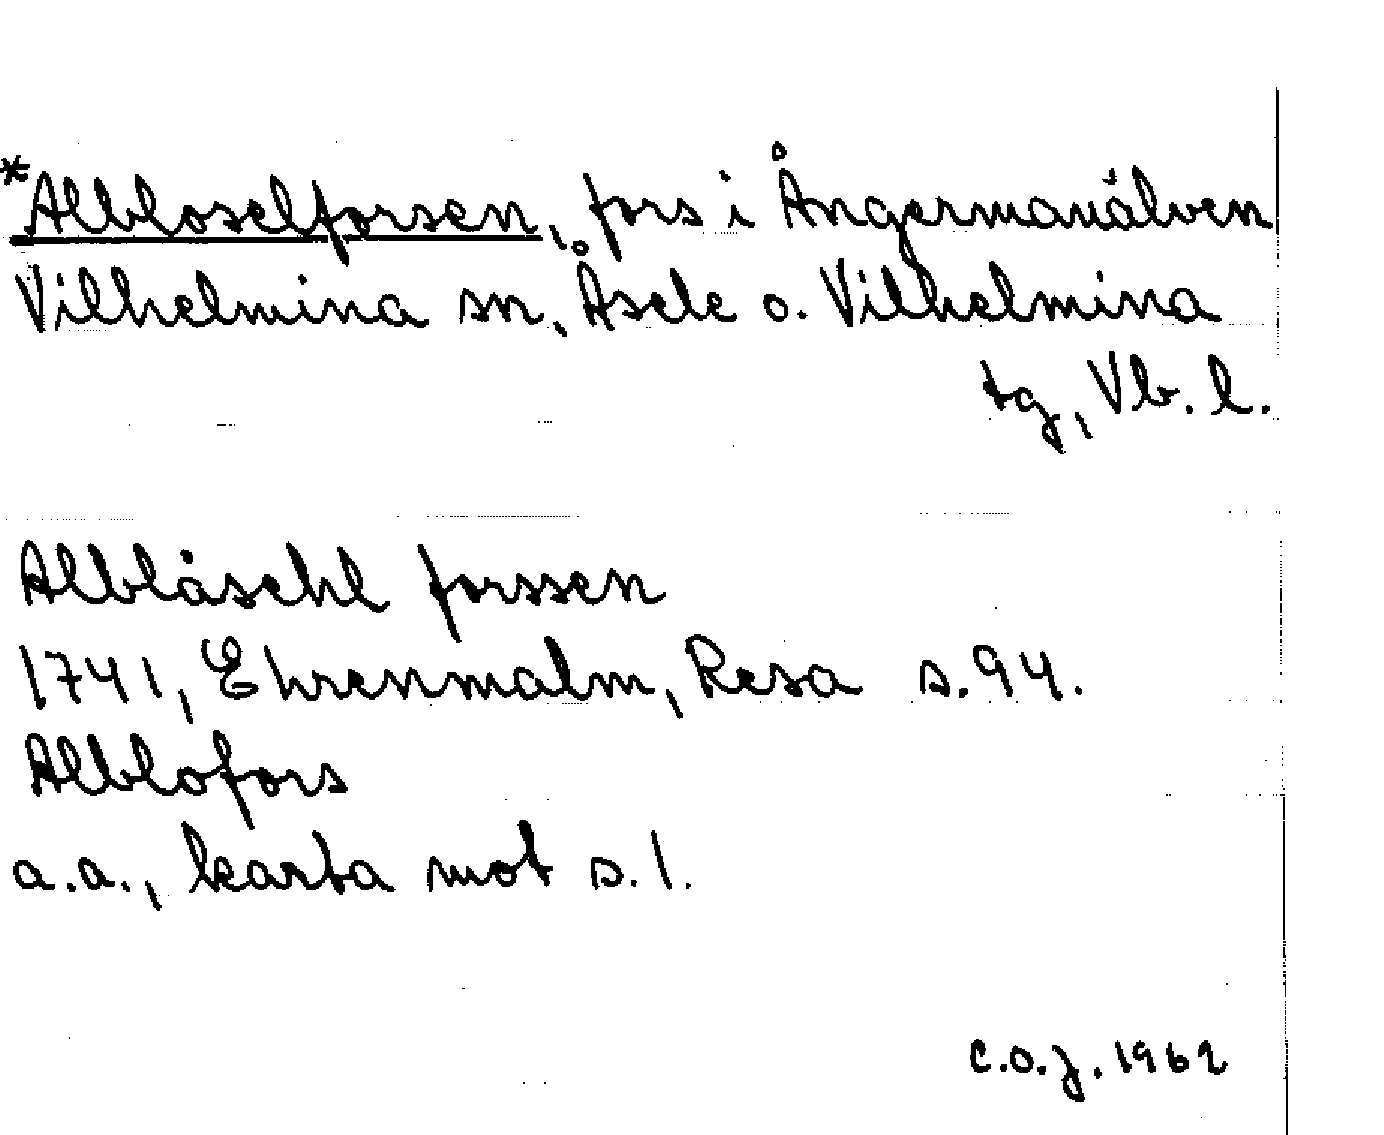 *Albloselforsen, fors i Ångermanälven
Vilhelmina sn, Åsele o. Vilhelmina
tg, Vb. l.
Albläsehl forssen
1741, Ehrenmalm, Resa s. 94.
Alblofors
a.a., karta mot s. 1.
C.O.J. 1962